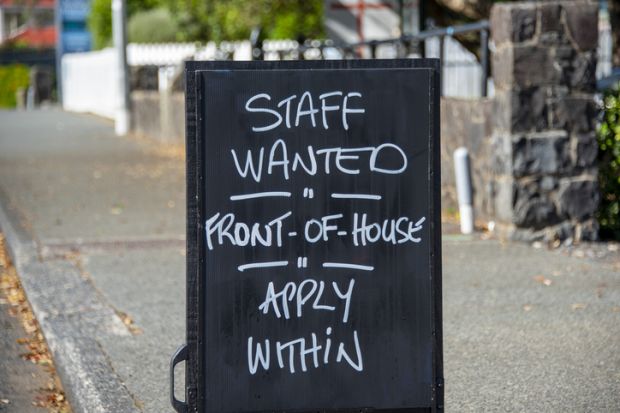 STAFF
WANTED
— " —
FRONT-OF-HOUSE
— " —
APPLY
WITHIN